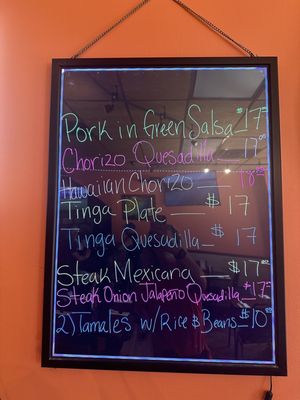 Pork in Green Salsa_$17.00
Chorizo Quesadilla__17.00
Hawaiian Chorizo___18.00
Tinga Plate__$17
Tinga Quesadilla_$17
Steak Mexicana__$17.00
Steak Onion Jalapeño Quesadilla_$17.00
2) Tamales w/Rice $ Beans_$10.00